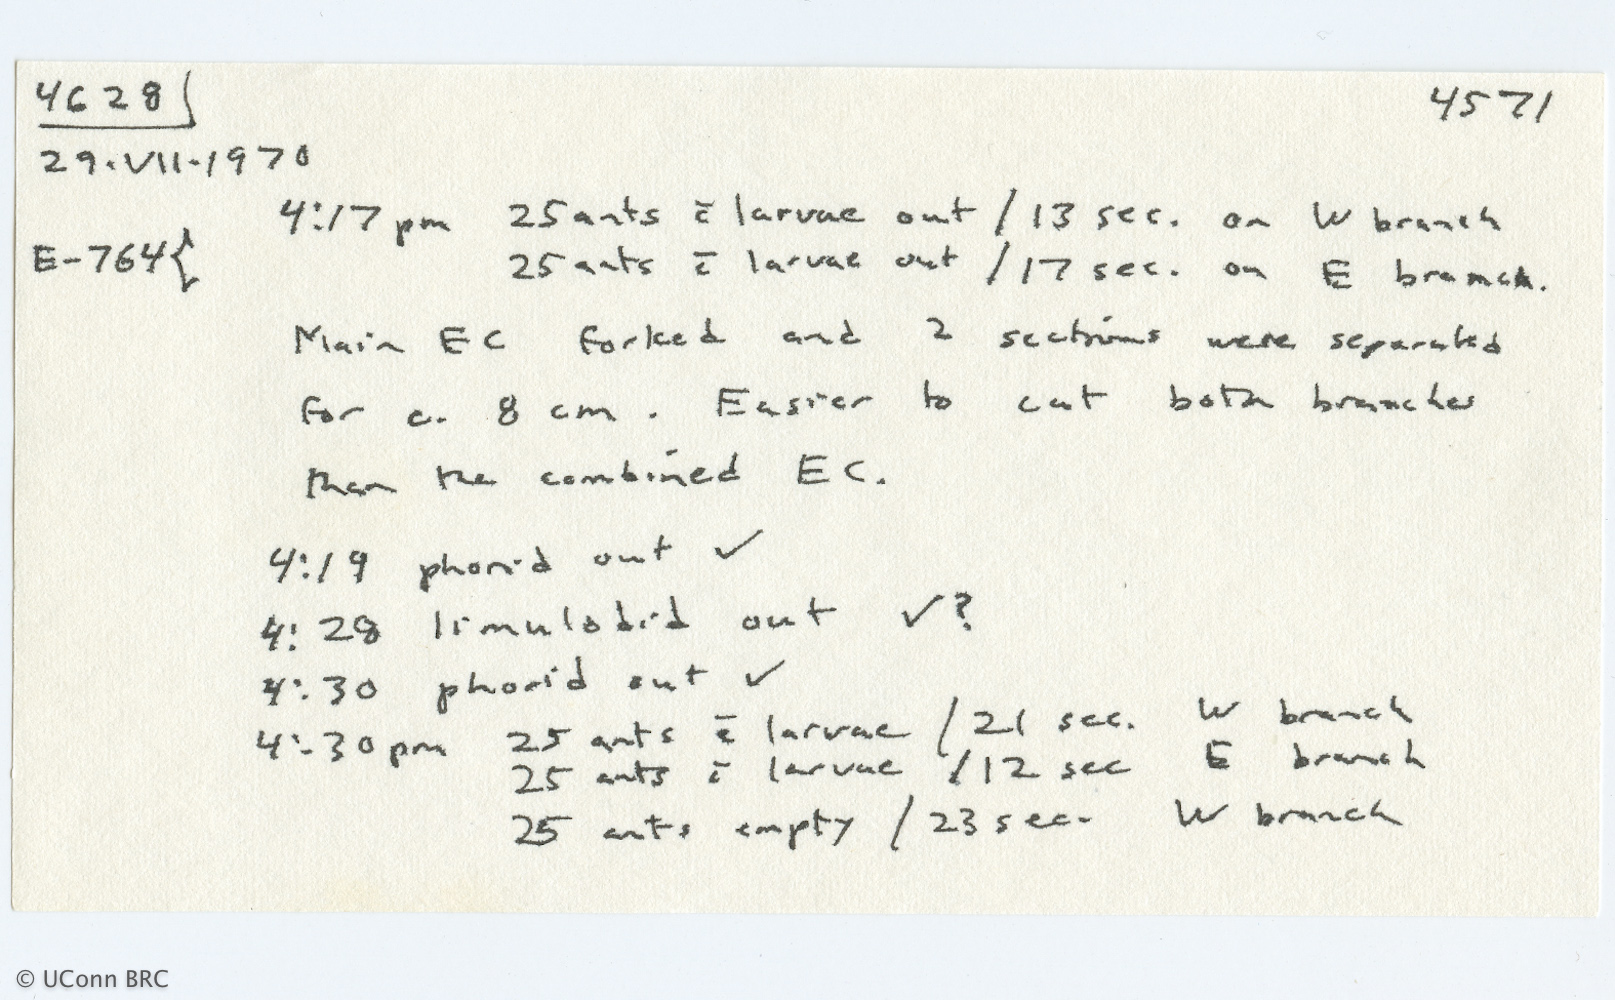 4628 4571
29.VII.1970
4:17 pm 25 ants c̄ larvae out / 13 sec. on W branch
E-764{ 25 ants c̄ larvae out / 17 sec. on E branch.
Main EC forked and 2 sections were separated
for c. 8 cm. Easier to cut both branches
than the combined EC.
4:19 phorid out ✓
4:28 limulodid out ✓?
4:30 phorid out ✓
4:30 pm 25 ants c̄ larvae / 21 sec. W branch
25 ants c̄ larvae / 12 sec E branch
25 ants empty / 23 sec. W branch
© UConn BRC